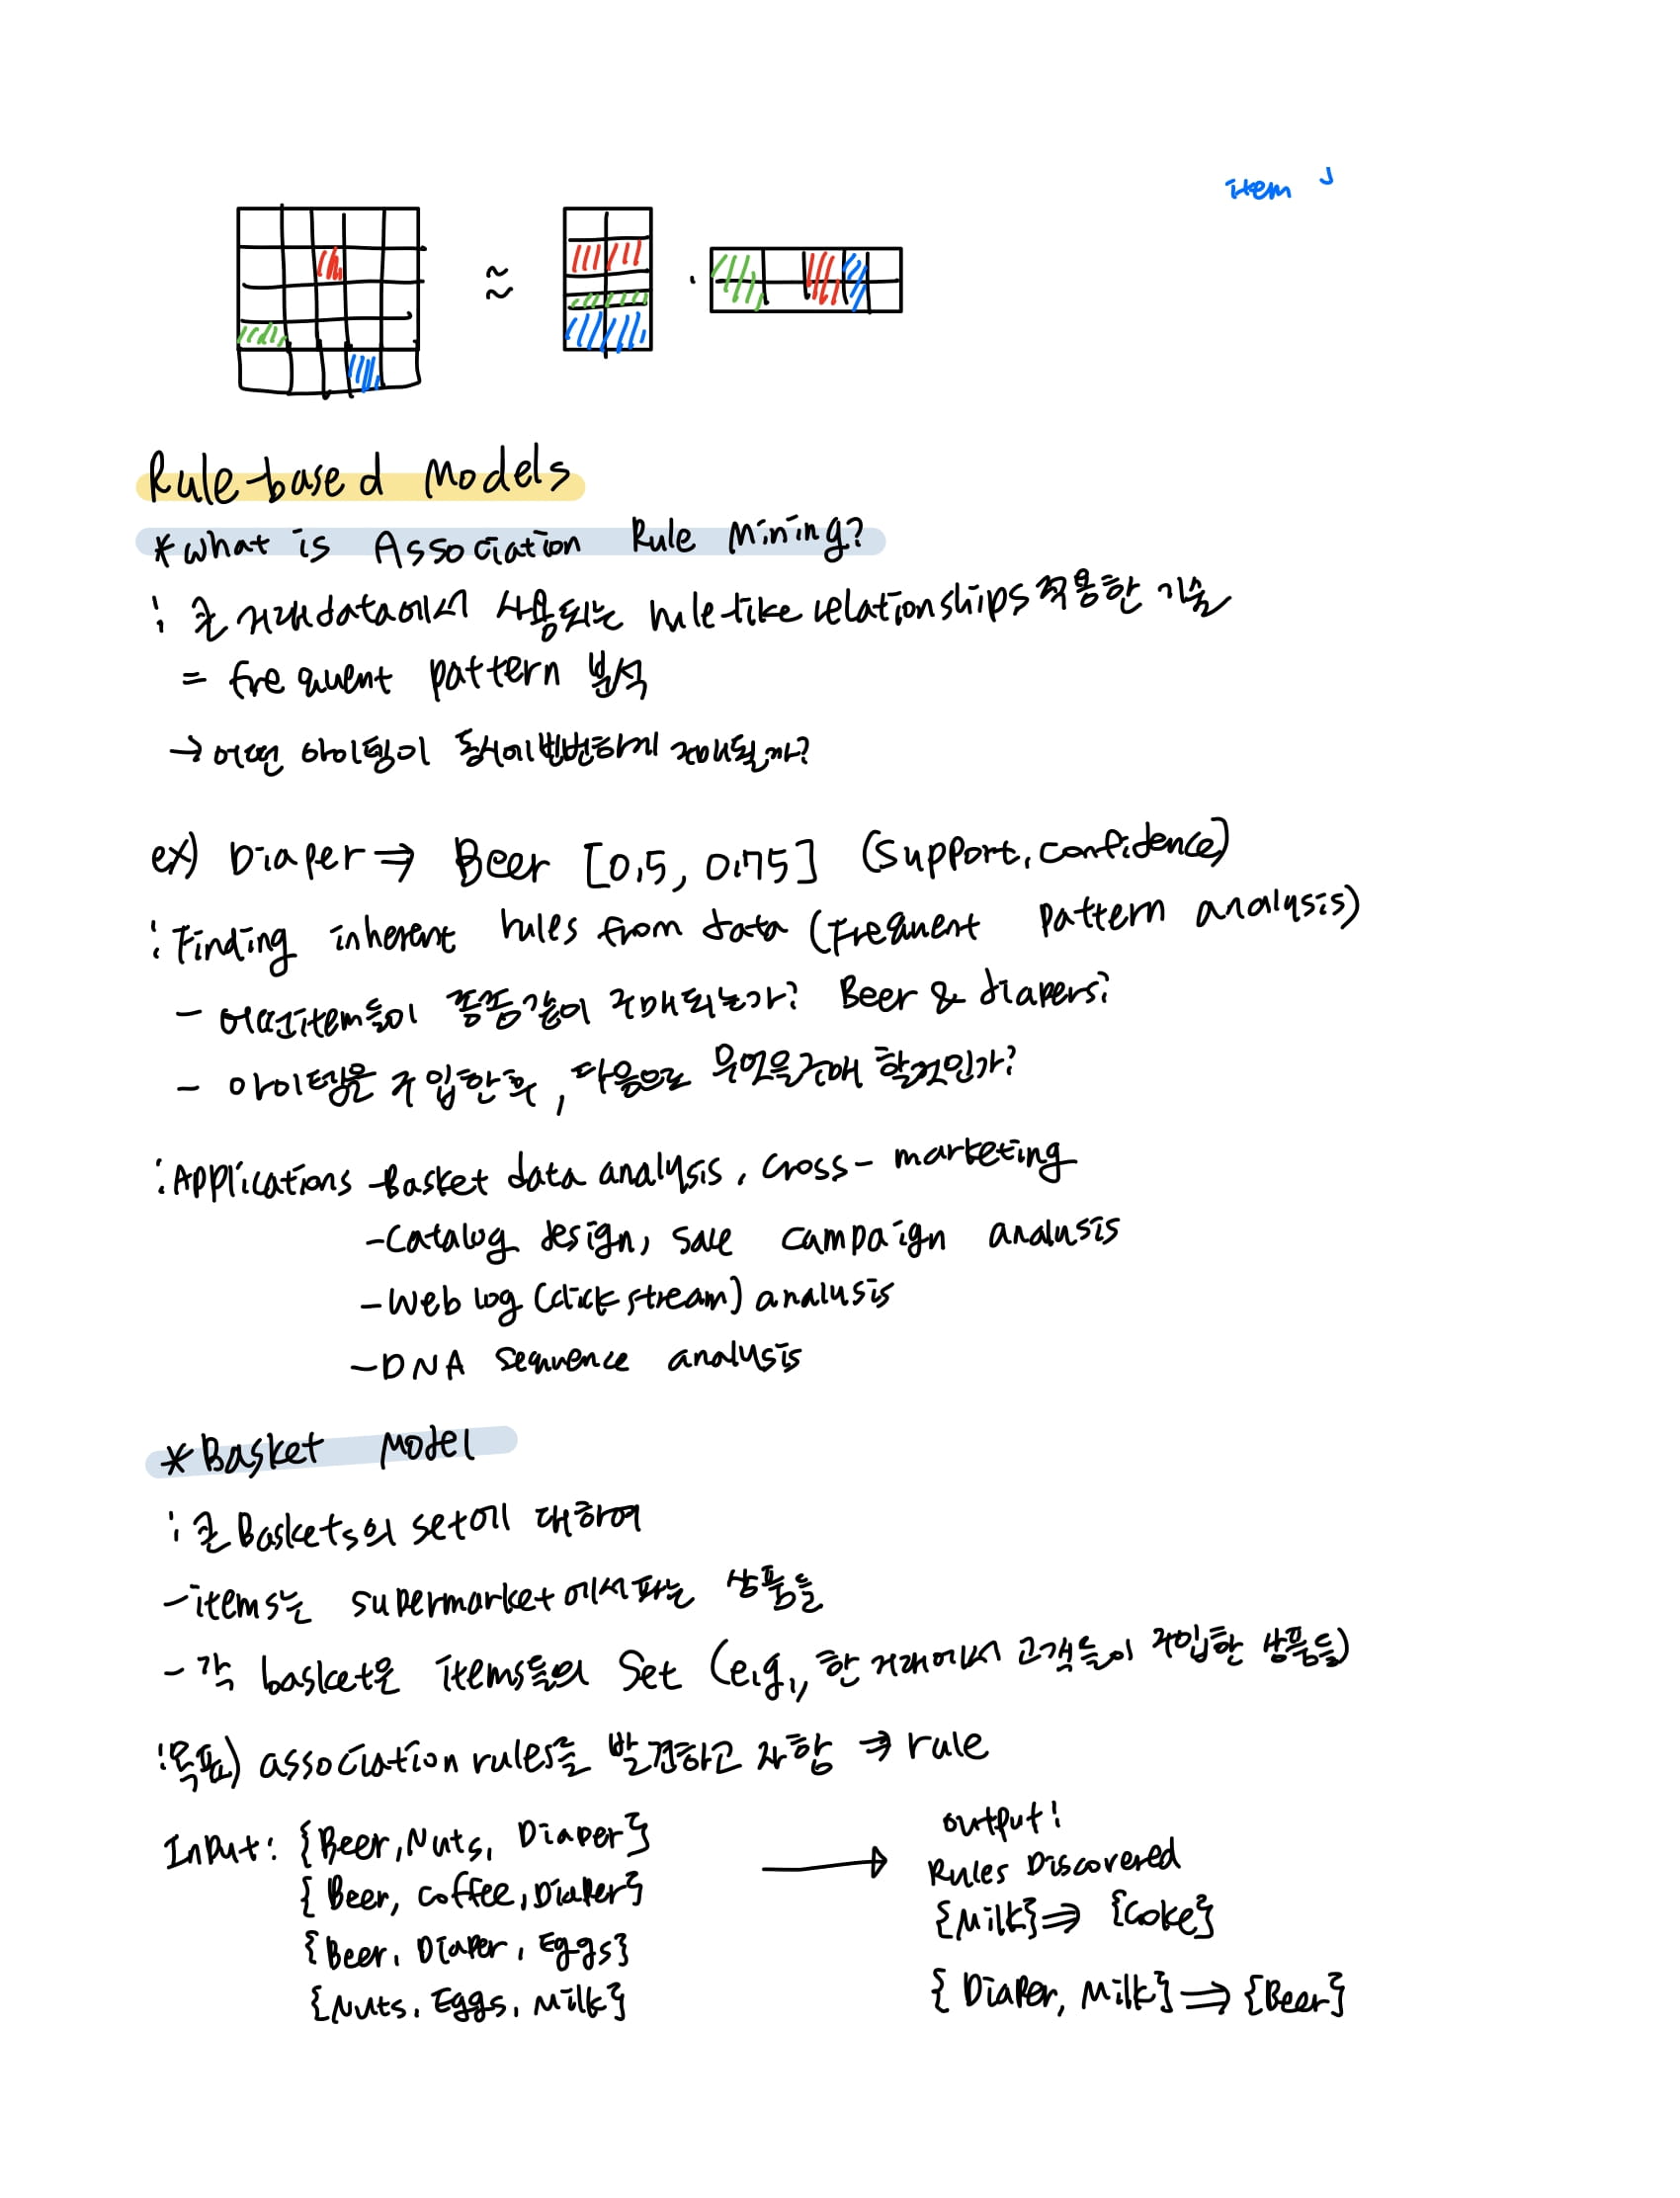 item J
≈ ·
Rule-based Models
*What is Association Rule Mining?
: 큰 거래data에서 사용되는 rule-like relationships 적용한 기술
= frequent pattern 분석
→ 어떤 아이템이 동시에 빈번하게 구매될까?
ex) Diaper ⇒ Beer [0.5, 0.75] (support, confidence)
: Finding inherent rules from data (frequent pattern analysis)
- 어떤item들이 종종같이 구매되는가? Beer & diapers?
- 아이템을 구입한후, 다음으로 무엇을구매 할것인가?
: Applications -Basket data analysis, cross-marketing
-Catalog design, sale campaign analysis
-Web log (click stream) analysis
-DNA sequence analysis
*Basket Model
: 큰 Baskets의 set에 대하여
-items는 supermarket에서파는 상품들
-각 basket은 items들의 set (e.g., 한 거래에서 고객들이 구입한 상품들)
: 목표) association rules를 발견하고 자함 → rule
Input: {Beer, Nuts, Diaper}
{Beer, coffee, Diaper}
{Beer, Diaper, Eggs}
{Nuts, Eggs, Milk}
→ output:
Rules Discovered
{Milk} ⇒ {Coke}
{Diaper, Milk} ⇒ {Beer}